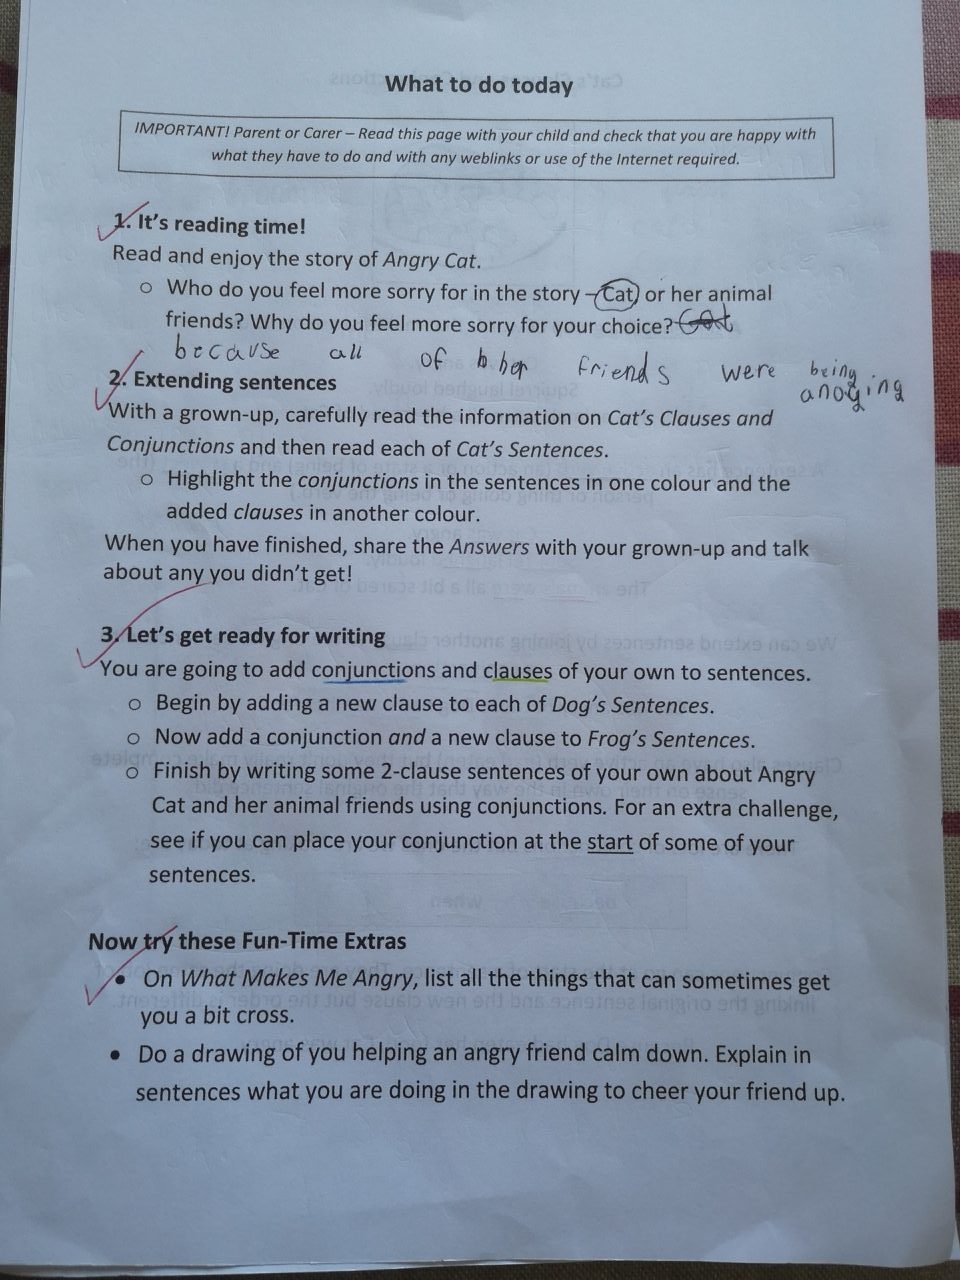 What to do today
IMPORTANT! Parent or Carer – Read this page with your child and check that you are happy with
what they have to do and with any weblinks or use of the Internet required.
1. It's reading time!
Read and enjoy the story of Angry Cat.
o Who do you feel more sorry for in the story – Cat) or her animal
friends? Why do you feel more sorry for your choice? Cat
because all of her friends were being
anoging
2. Extending sentences
With a grown-up, carefully read the information on Cat's Clauses and
Conjunctions and then read each of Cat's Sentences.
o Highlight the conjunctions in the sentences in one colour and the
added clauses in another colour.
When you have finished, share the Answers with your grown-up and talk
about any you didn't get!
3. Let's get ready for writing
You are going to add conjunctions and clauses of your own to sentences.
o Begin by adding a new clause to each of Dog's Sentences.
o Now add a conjunction and a new clause to Frog's Sentences.
o Finish by writing some 2-clause sentences of your own about Angry
Cat and her animal friends using conjunctions. For an extra challenge,
see if you can place your conjunction at the start of some of your
sentences.
Now try these Fun-Time Extras
• On What Makes Me Angry, list all the things that can sometimes get
you a bit cross.
• Do a drawing of you helping an angry friend calm down. Explain in
sentences what you are doing in the drawing to cheer your friend up.